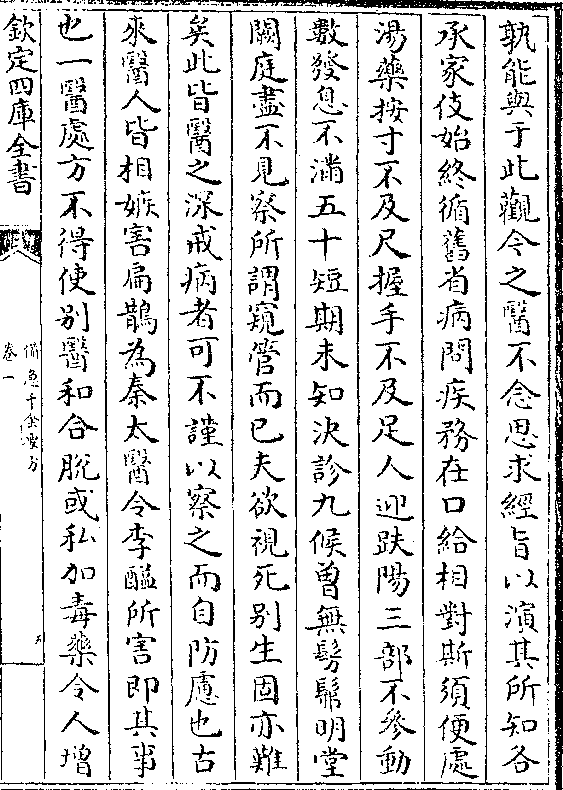 孰能與于此觀今之醫不念思求經旨以演其所知各
承家伎始終循舊省病問疾務在口給相對斯須便處
湯藥按寸不及尺握手不及足人迎趺陽三部不參動
數發息不滿五十短期未知決診九候曾無髣髴明堂
闕庭盡不見察所謂窺管而已夫欲視死别生固亦難
矣此皆醫之深戒病者可不謹以察之而自防慮也古
來醫人皆相嫉害扁鵲為秦太醫令李醯所害即其事
也一醫處方不得使别醫和合脱或私加毒藥令人增
欽定四庫全書
備急千金要方
卷一
五